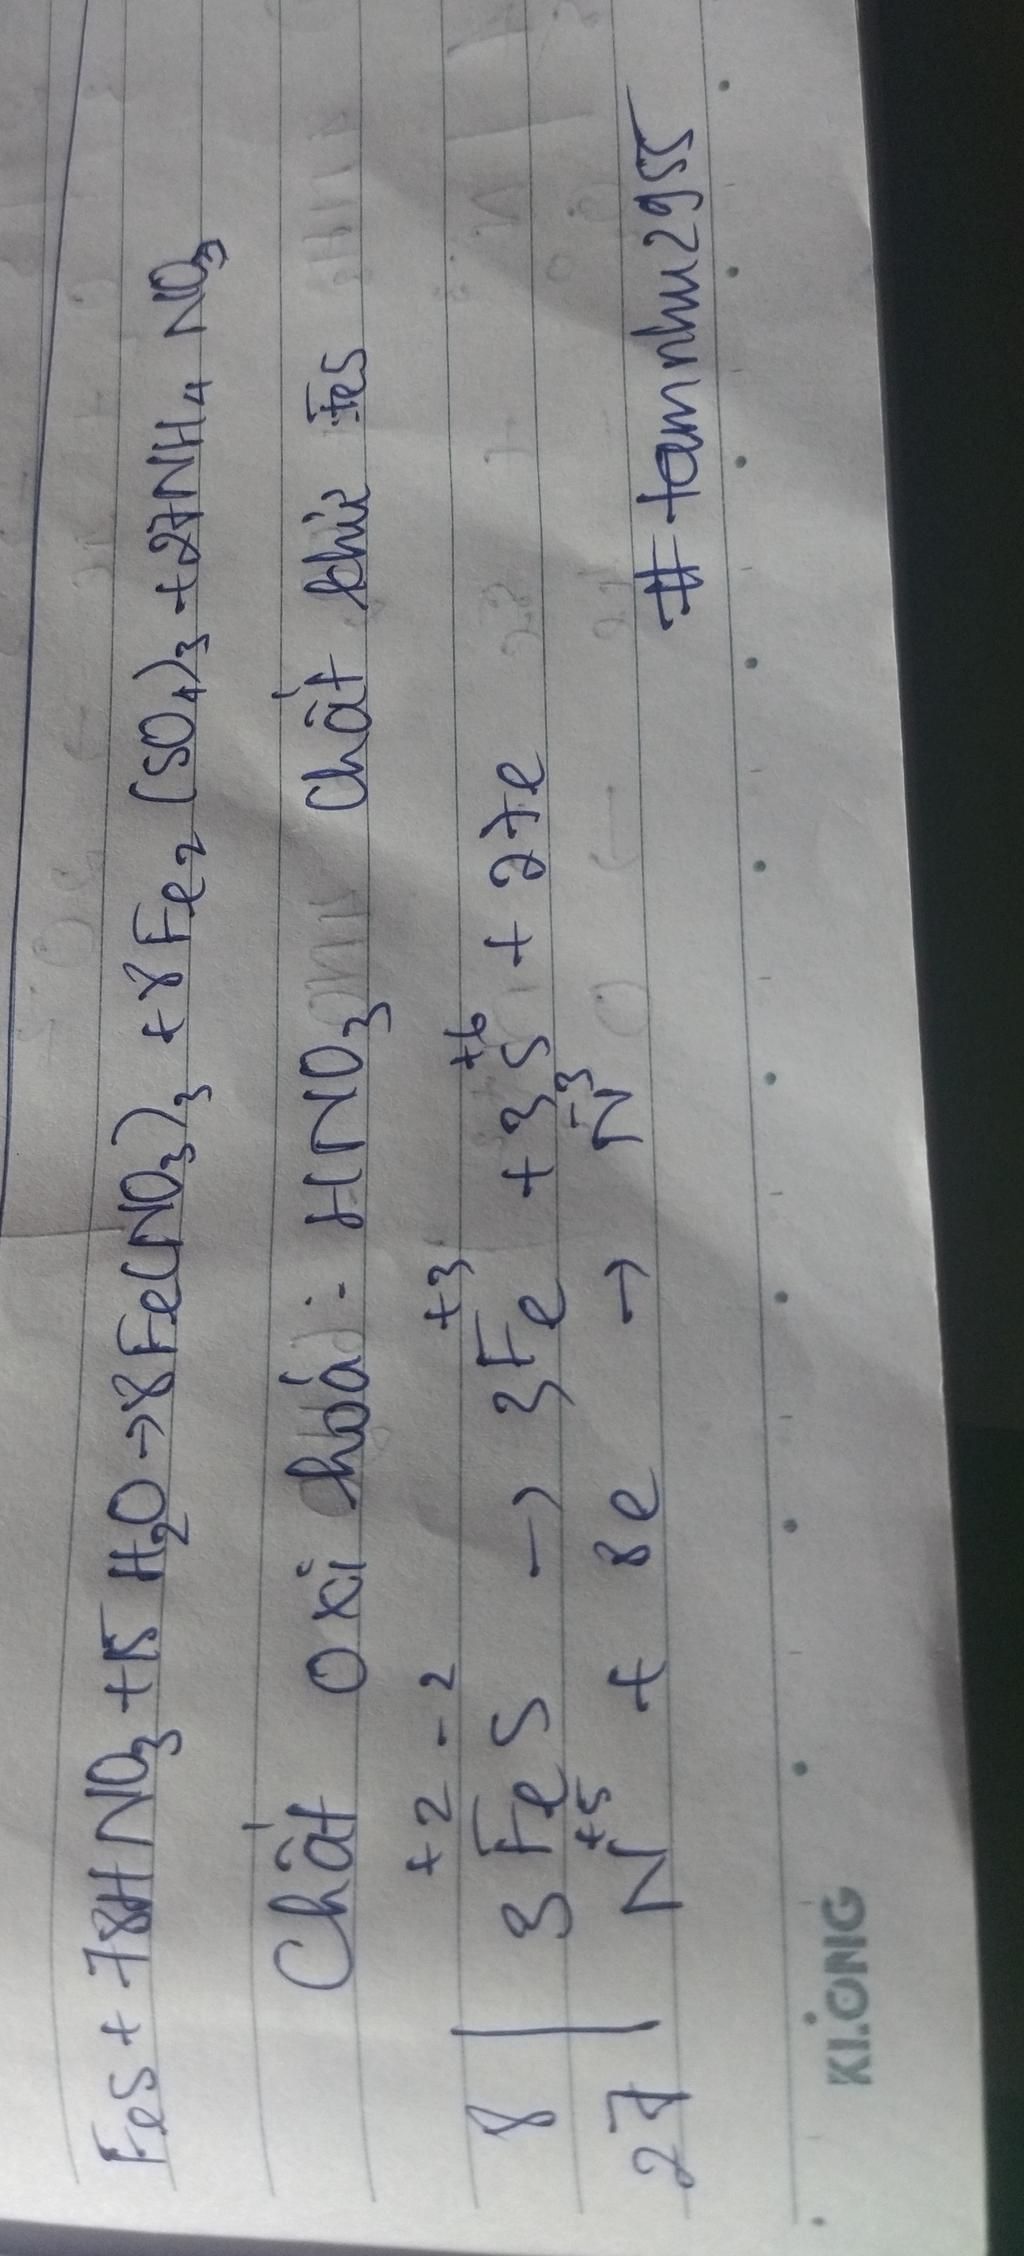 FeS + 78HNO3 + 15 H2O → 8Fe(NO3)3 + 8Fe2(SO4)3 + 27NH4 NO3
Chất oxi hoá : HNO3 Chất khử FeS
+2 -2 +3 +6
8 | 3FeS → 3Fe + 3S + 27e
+5 -3
27 | N + 8e → N
#tamnhu2955
KLONG